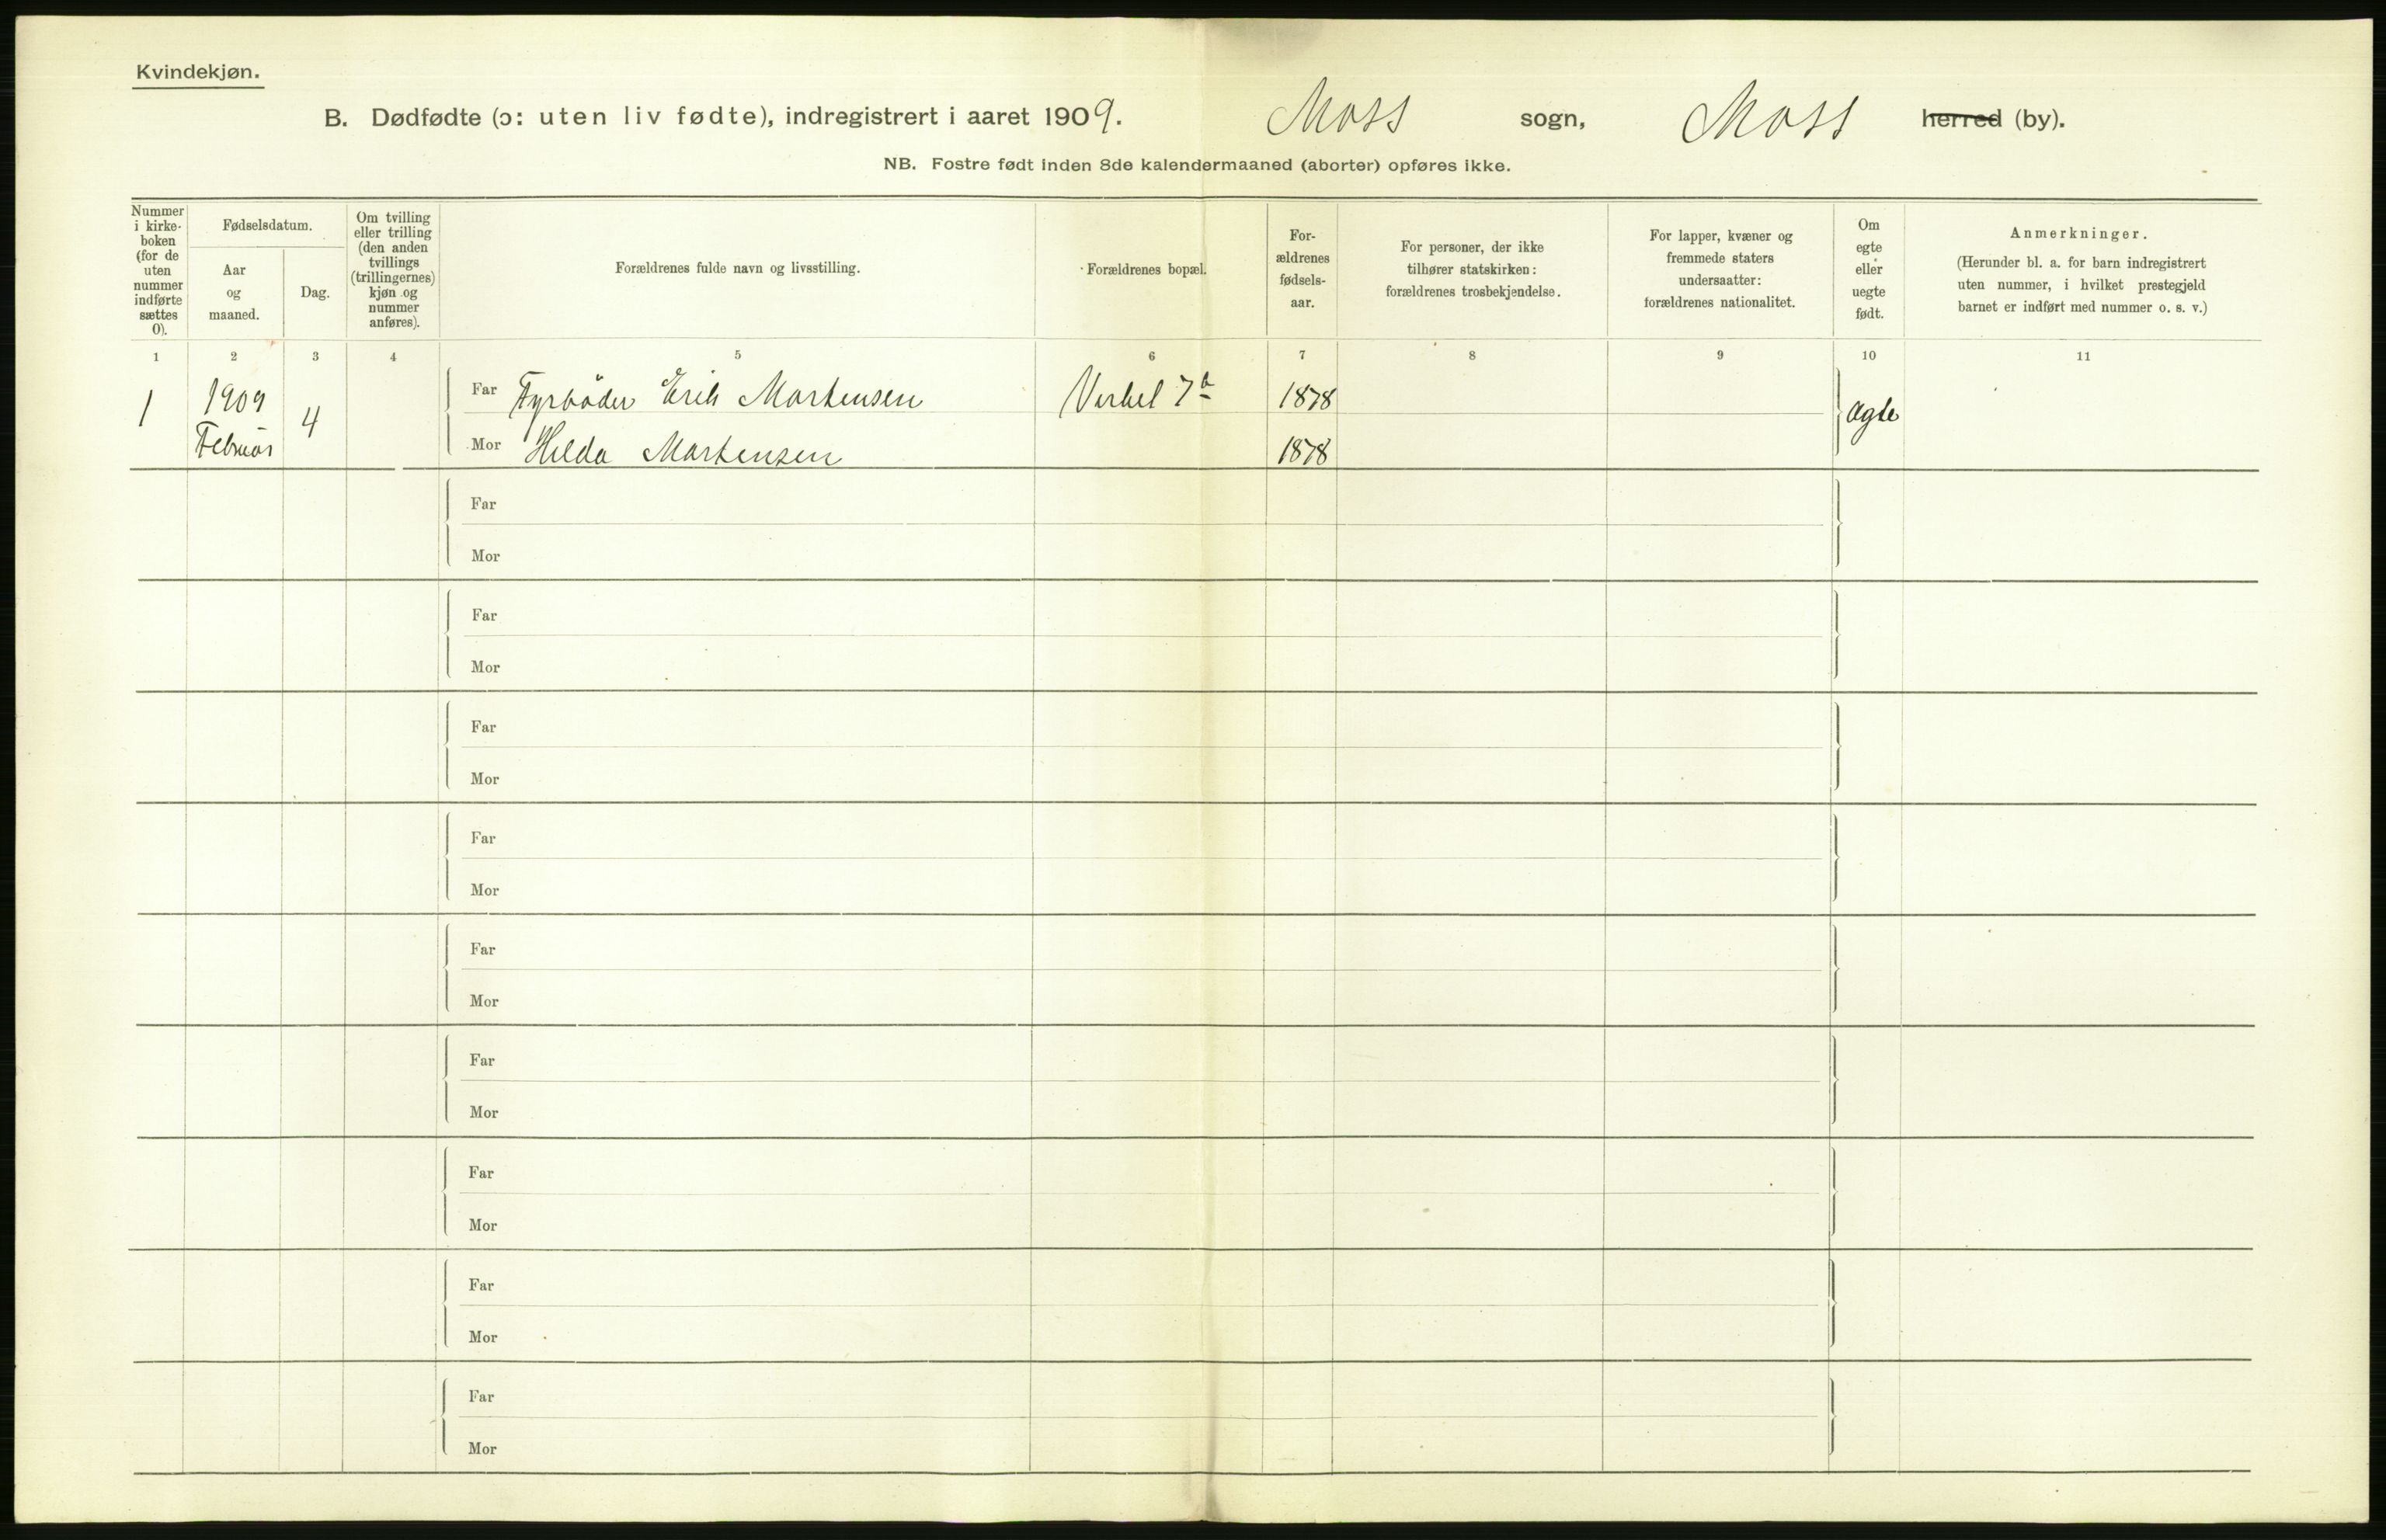 Kvindekjøn.
B. Dødfødte (ɔ: uten liv fødte), indregistrert i aaret 1909. Moss sogn, Moss herred (by).
NB. Fostre født inden 8de kalendermaaned (aborter) opføres ikke.
Nummer
i kirke-
boken
(for de
uten
nummer
indførte
sættes
0).
Fødselsdatum.
Aar
og
maaned.
Dag.
Om tvilling
eller trilling
(den anden
tvillings
(trillingernes)
kjøn og
nummer
anføres).
Forældrenes fulde navn og livsstilling.
Forældrenes bopæl.
For-
ældrenes
fødsels-
aar.
For personer, der ikke
tilhører statskirken:
forældrenes trosbekjendelse.
For lapper, kvæner og
fremmede staters
undersaatter:
forældrenes nationalitet.
Om
egte
eller
uegte
født.
Anmerkninger.
(Herunder bl. a. for barn indregistrert
uten nummer, i hvilket prestegjeld
barnet er indført med nummer o. s. v.)
1 2 3 4 5 6 7 8 9 10 11
1 1909 Februar 4
Far Fyrbøder Erik Martensen 1878
Mor Hilda Martensen 1878
Ægte
Far
Mor
Far
Mor
Far
Mor
Far
Mor
Far
Mor
Far
Mor
Far
Mor
Far
Mor
Far
Mor